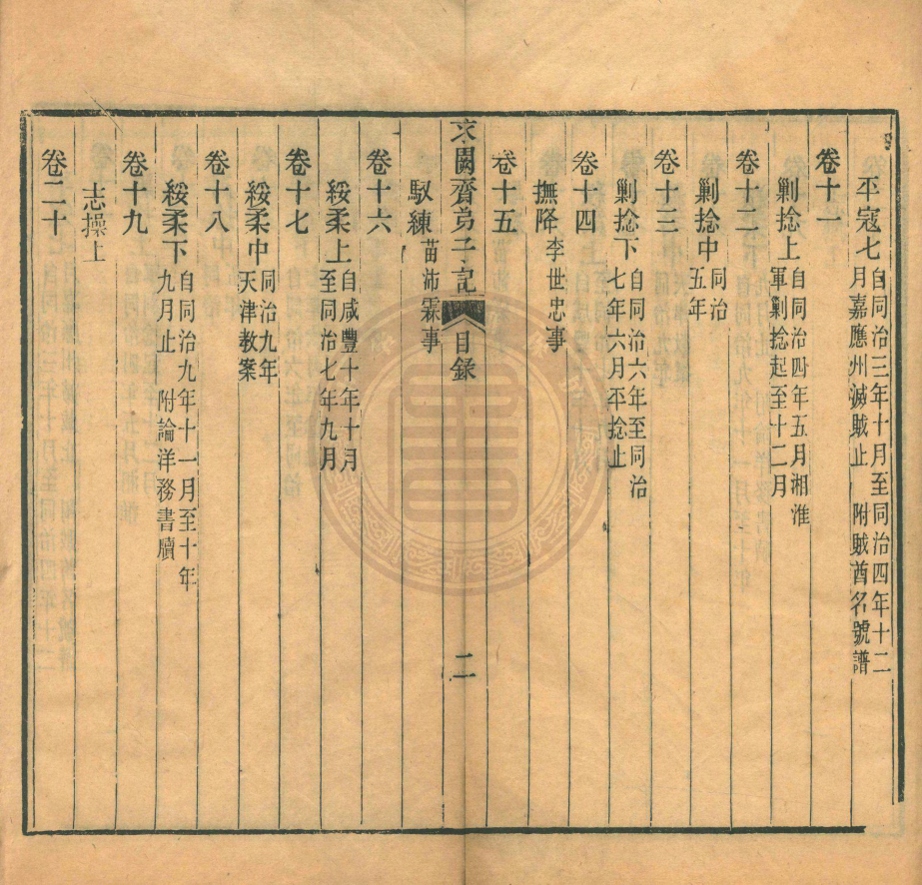 平寇七 自同治三年十月至同治四年十二
月嘉應州滅賊止 附賊酋名號譜
卷十一
剿捻上 自同治四年五月湘淮
軍剿捻起至十二月
卷十二
剿捻中 同治
五年
卷十三
剿捻下 自同治六年至同治
七年六月平捻止
卷十四
撫降 李世忠事
卷十五
求闕齋弟子記 目錄 二
馭練 苗沛霖事
卷十六
綏柔上 自咸豐十年十月
至同治七年九月
卷十七
綏柔中 同治九年
天津教案
卷十八
綏柔下 自同治九年十一月至十年
九月止 附論洋務書牘
卷十九
志操上
卷二十